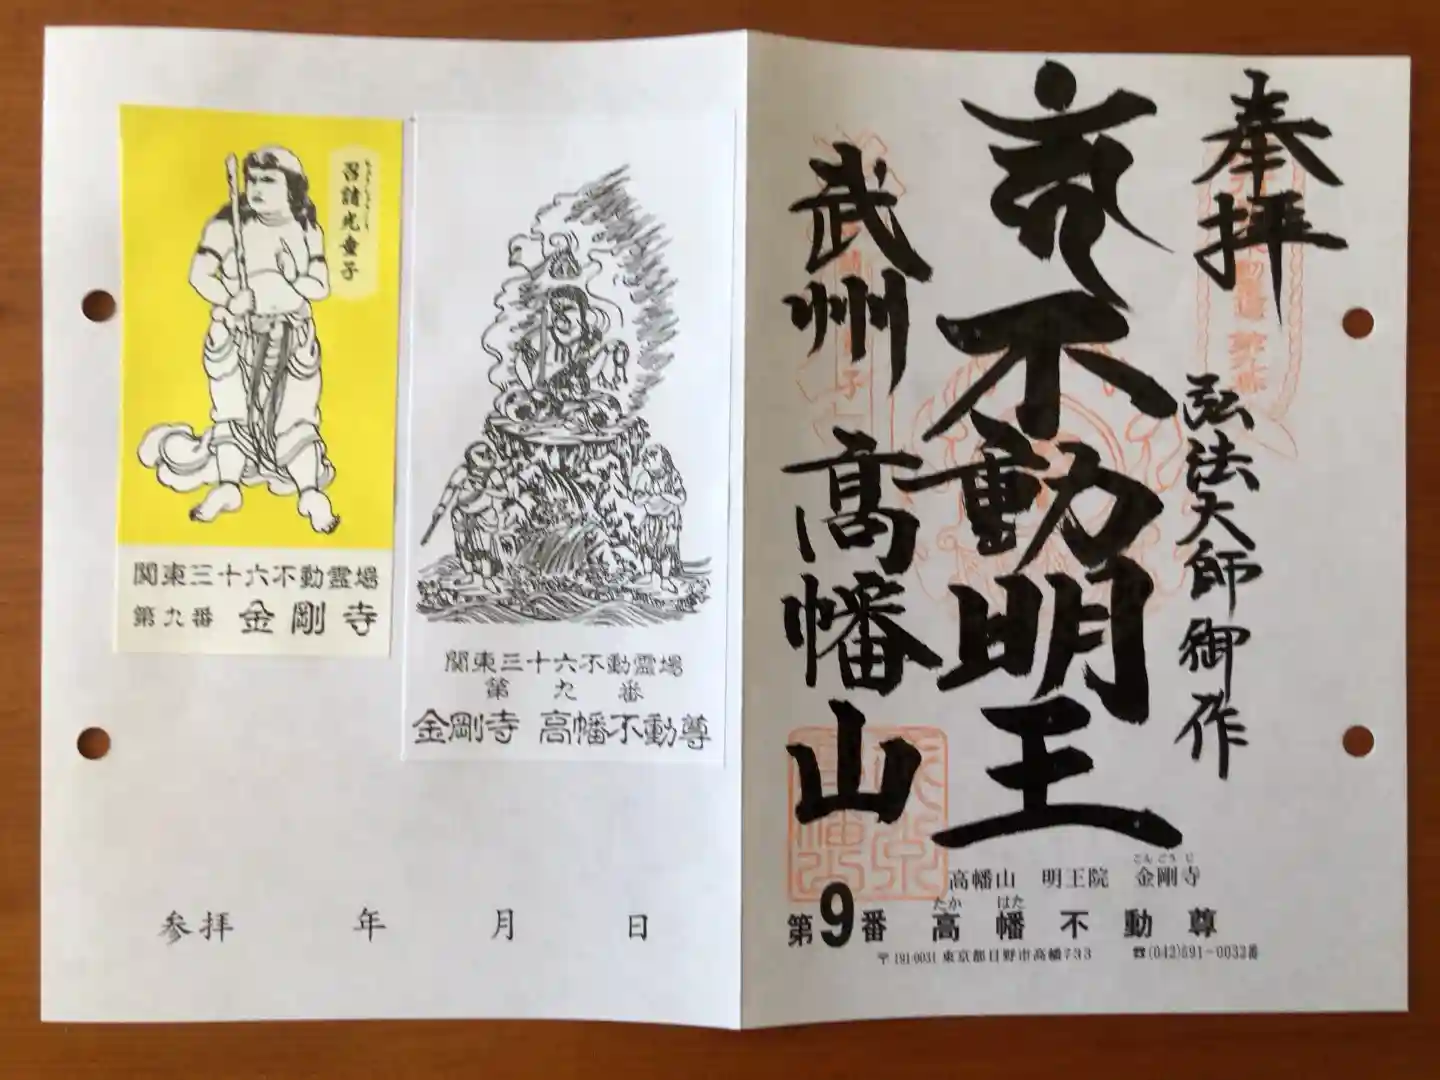 奉拝
弘法大師御作
不動明王
武州 髙幡山
こんごうじ
高幡山 明王院 金剛寺
たか はた
第9番 高幡不動尊
〒191-0031 東京都日野市高幡733 ☎(042)591-0032番
召請光童子
関東三十六不動霊場
第九番 金剛寺
関東三十六不動霊場
第九番
金剛寺 高幡不動尊
参拝 年 月 日